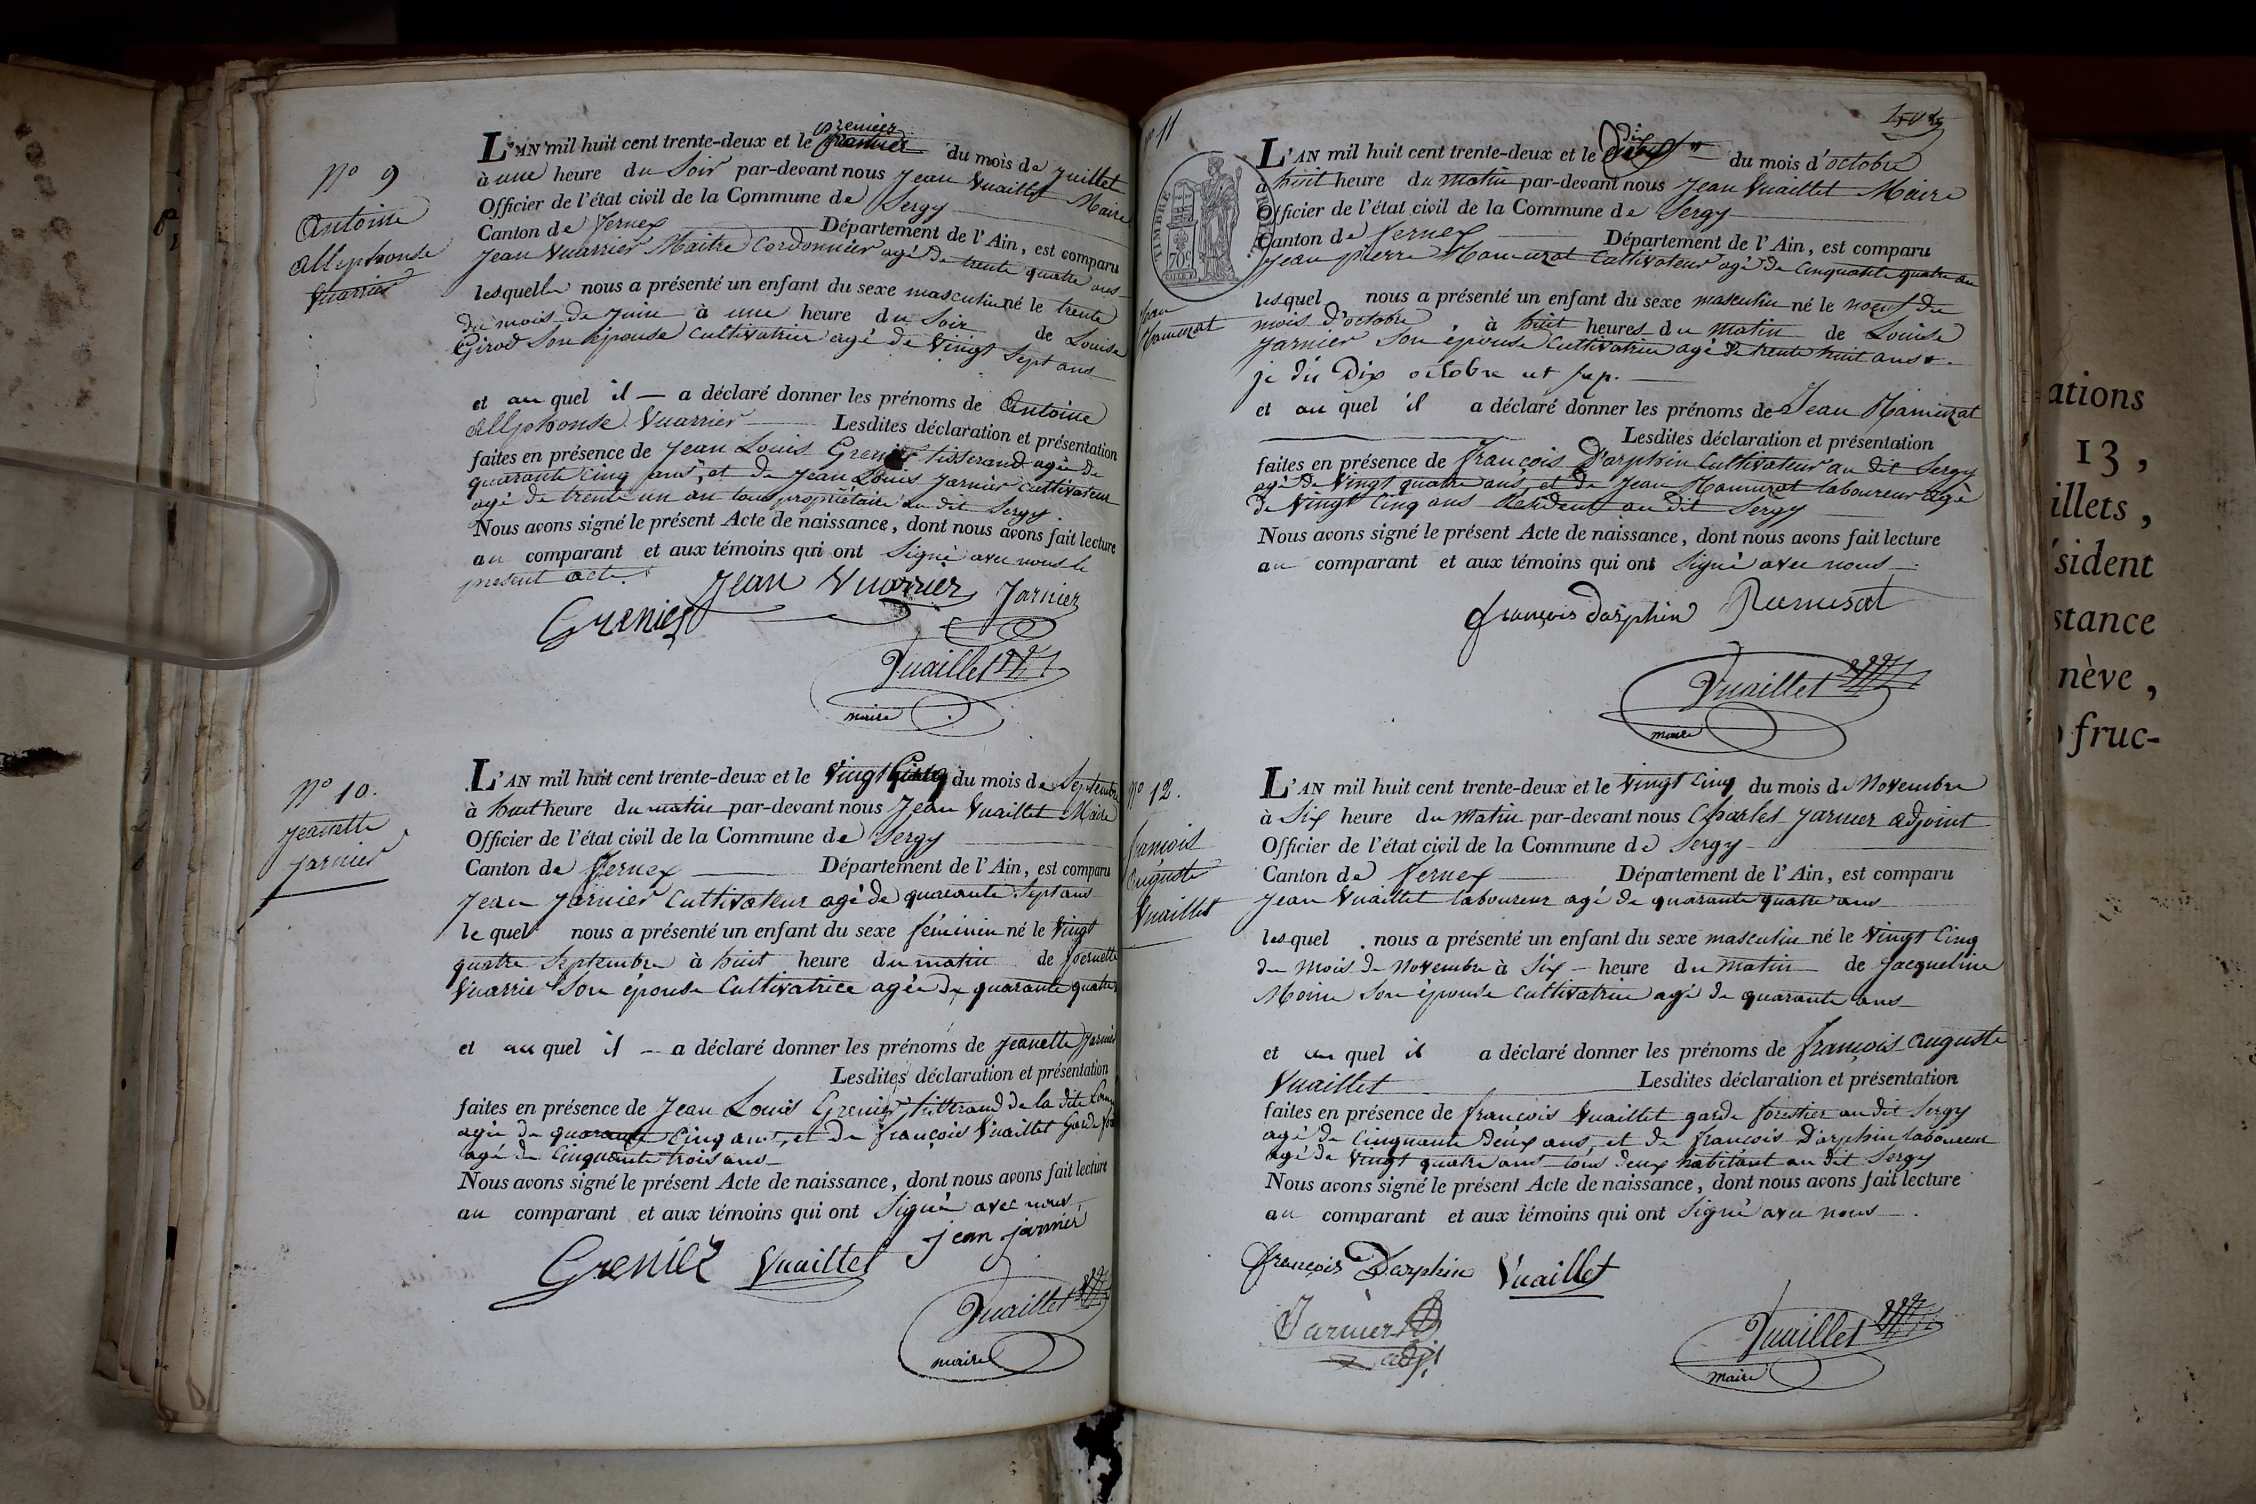 Nº 9
Antoine
Allphonse
Vuarrier
L'AN mil huit cent trente-deux et le premier du mois de Juillet
à une heure du Soir par-devant nous Jean Vuaillet Maire
Officier de l'état civil de la Commune de Sergy
Canton de Fernex Département de l'Ain, est comparu
Jean Vuarrier Maitre Cordonnier agé de trente quatre ans
lesquelle nous a présenté un enfant du sexe masculin né le trente
du mois de Juin à une heure du Soir de Louise
Girod Son épouse Cultivatrice agé de Vingt Sept ans
et au quel il a déclaré donner les prénoms de Antoine
Allphonse Vuarrier Lesdites déclaration et présentation
faites en présence de Jean Louis Grenier tisserand agé de
quarante Cinq ans, et de Jean Louis Jarnier Cultivateur
agé de trente un an tous propriétaire au dit Sergy
Nous avons signé le présent Acte de naissance, dont nous avons fait lecture
au comparant et aux témoins qui ont Signé avec nous le
présent acte.
Jean Vuarrier Jarnier
Grenier
Vuaillet
maire
Nº 10.
Jeanette
Jarnier
L'AN mil huit cent trente-deux et le Vingt Cinq du mois de Septembre
à huit heure du matin par-devant nous Jean Vuaillet Maire
Officier de l'état civil de la Commune de Sergy
Canton de Fernex Département de l'Ain, est comparu
Jean Jarnier Cultivateur agé de quarante Sept ans
le quel nous a présenté un enfant du sexe féminin né le Vingt
quatre Septembre à huit heure du matin de Pernette
Vuarrier Son épouse Cultivatrice agée de quarante quatre
et au quel il a déclaré donner les prénoms de Jeanette Jarnier
Lesdites déclaration et présentation
faites en présence de Jean Louis Grenier tisserand de la dite
agée de quarante Cinq ans, et de françois Vuaillet Garde
agé de Cinquante trois ans
Nous avons signé le présent Acte de naissance, dont nous avons fait lecture
au comparant et aux témoins qui ont Signé avec nous
jean jarnier
Grenier Vuaillet
Vuaillet
maire
11
TIMBRE
70c
Jean
Ramuzat
L'AN mil huit cent trente-deux et le dix du mois d'octobre
à huit heure du matin par-devant nous Jean Vuaillet Maire
Officier de l'état civil de la Commune de Sergy
Canton de Fernex Département de l'Ain, est comparu
Jean pierre Ramuzat Cultivateur agé de Cinquante quatre an
lesquel nous a présenté un enfant du sexe masculin né le noeuf du
mois d'octobre à huit heures du matin de Louise
Jarnier Son épouse Cultivatrice agé de trente huit ans
je dis Dix octobre ut sup.
et au quel il a déclaré donner les prénoms de Jean Ramuzat
Lesdites déclaration et présentation
faites en présence de françois D'arphin Cultivateur au dit Sergy
agé de Vingt quatre ans, et de Jean Ramuzat laboureur agé
de Vingt Cinq ans Résident au dit Sergy
Nous avons signé le présent Acte de naissance, dont nous avons fait lecture
au comparant et aux témoins qui ont Signé avec nous
françois Darphin Ramusat
Vuaillet
maire
Nº 12.
françois
Auguste
Vuaillet
L'AN mil huit cent trente-deux et le Vingt Cinq du mois de Novembre
à Six heure du Matin par-devant nous Charles Jarnier adjoint
Officier de l'état civil de la Commune de Sergy
Canton de Fernex Département de l'Ain, est comparu
Jean Vuaillet laboureur agé de quarante quatre ans
lesquel nous a présenté un enfant du sexe masculin né le Vingt Cinq
du mois de Novembre à Six heure du matin de Jacqueline
Moine Son épouse Cultivatrice agé de quarante ans
et au quel il a déclaré donner les prénoms de françois Auguste
Vuaillet Lesdites déclaration et présentation
faites en présence de françois Vuaillet garde forestier au dit Sergy
agé de Cinquante deux ans, et de françois D'arphin laboureur
agé de Vingt quatre ans tous deux habitant au dit Sergy
Nous avons signé le présent Acte de naissance, dont nous avons fait lecture
au comparant et aux témoins qui ont Signé avec nous
françois Darphin Vuaillet
Jarnier
adj.t
Vuaillet
maire
ations
13,
illets,
sident
stance
nève,
fruc-